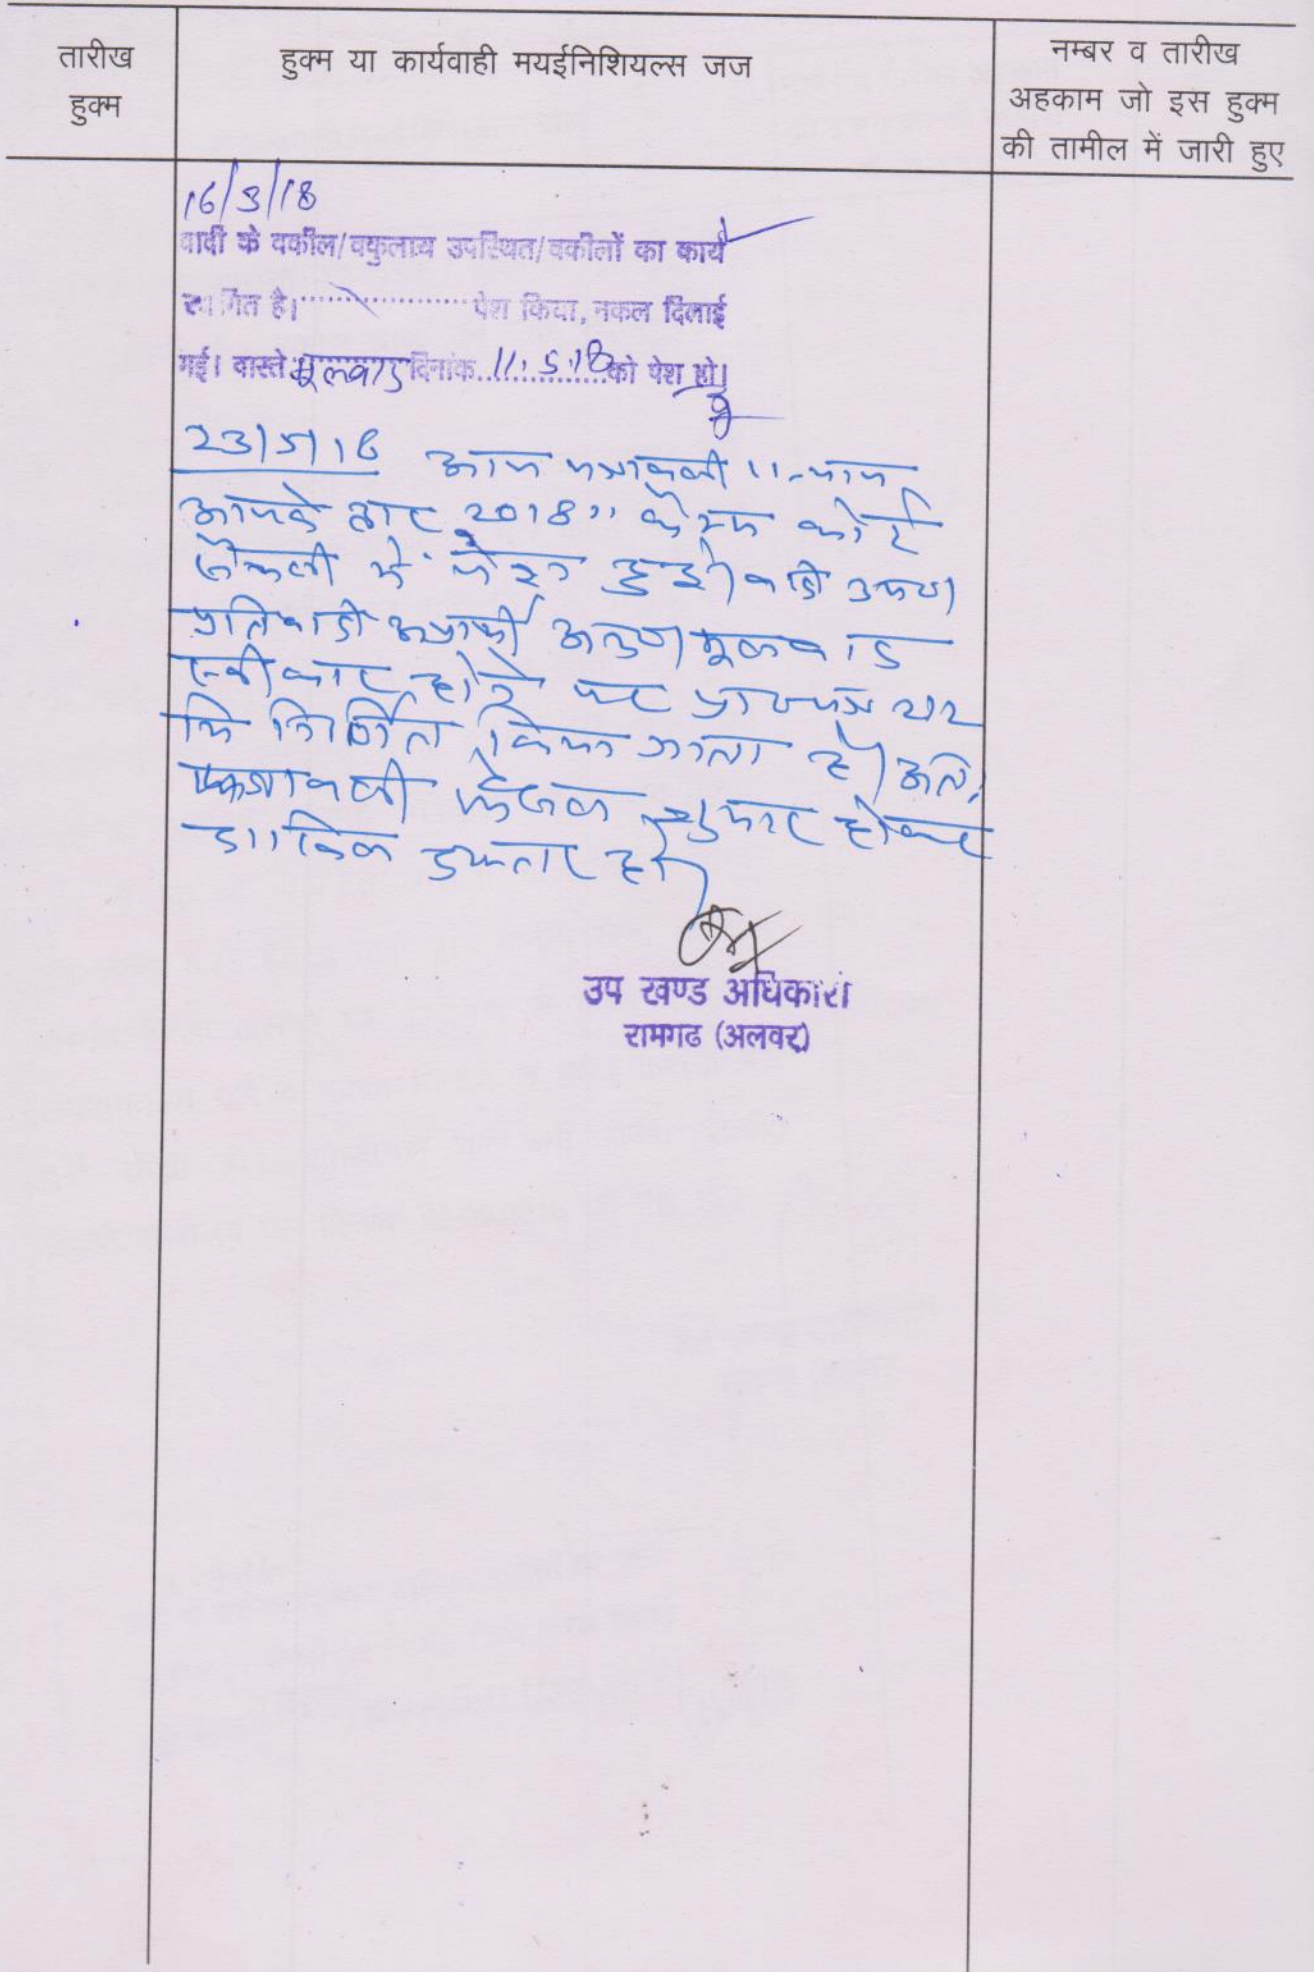 तारीख
हुक्म
हुक्म या कार्यवाही मयईनिशियल्स जज
नम्बर व तारीख
अहकाम जो इस हुक्म
की तामील में जारी हुए
16/3/18
वादी के वकील/वकुलाय उपस्थित/वकीलों का कार्य
स्थगित है।.................... पेश किया, नकल दिलाई
गई। वास्ते मूलवाद दिनांक 11.5.18 को पेश हो।
23/5/18 आज पत्रावली "न्याय
आपके द्वार 2018" कैम्प कोर्ट
में पेश हुई। वादी उप०
प्रतिवादी अनु० मूलवाद
स्वीकार होने पर
निर्णित किया जाता है। अतः
पत्रावली फैसल शुमार होकर
दाखिल दफ्तर हो।
उप खण्ड अधिकारी
रामगढ (अलवर)